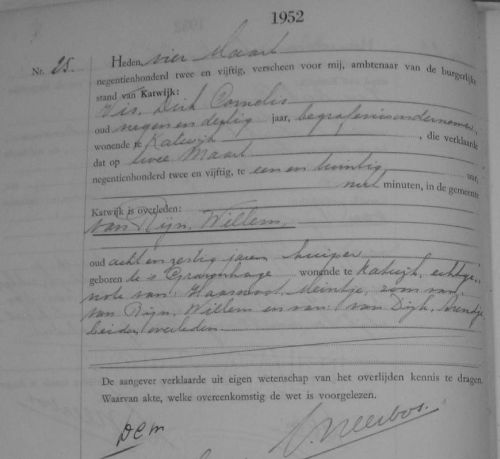 1952
Nr. 25. Heden vier Maart
negentienhonderd twee en vijftig, verscheen voor mij, ambtenaar van de burgerlijke
stand van Katwijk:
Vis, Dirk Cornelis
oud negen en dertig jaar, begrafenisondernemer,
wonende te Katwijk, die verklaarde
dat op twee Maart
negentienhonderd twee en vijftig, te een en twintig uur,
nul minuten, in de gemeente
Katwijk is overleden:
van Rijn, Willem,
oud acht en zestig jaren, kuiper
geboren te 's Gravenhage wonende te Katwijk, echtge-
note van Haasnoot, Meintje, zoon van
van Rijn, Willem en van van Dijk,
beiden overleden
De aangever verklaarde uit eigen wetenschap van het overlijden kennis te dragen.
Waarvan akte, welke overeenkomstig de wet is voorgelezen.